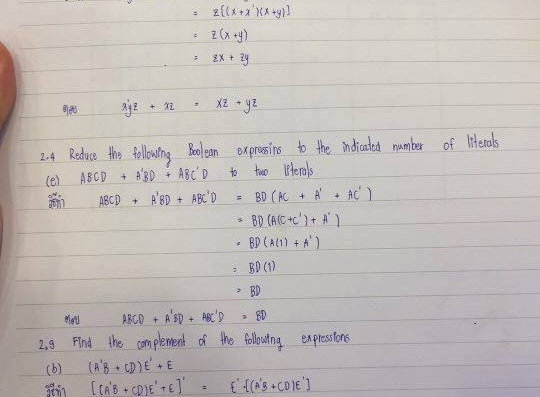 = z[(x+x')(x+y)]
= z(x+y)
= zx + zy
ตอบ x'yz + xz = xz + yz
2.4 Reduce the following Boolean expressins to the indicated number of literals
(e) ABCD + A'BD + ABC'D to two literals
วิธีทำ ABCD + A'BD + ABC'D = BD(AC + A' + AC')
= BD(A(C+C') + A')
= BD(A(1) + A')
= BD(1)
= BD
ตอบ ABCD + A'BD + ABC'D = BD
2.9 Find the complement of the following expressions
(b) (A'B + CD)E' + E
วิธีทำ [(A'B + CD)E' + E]' = E'·[(A'B + CD)E']